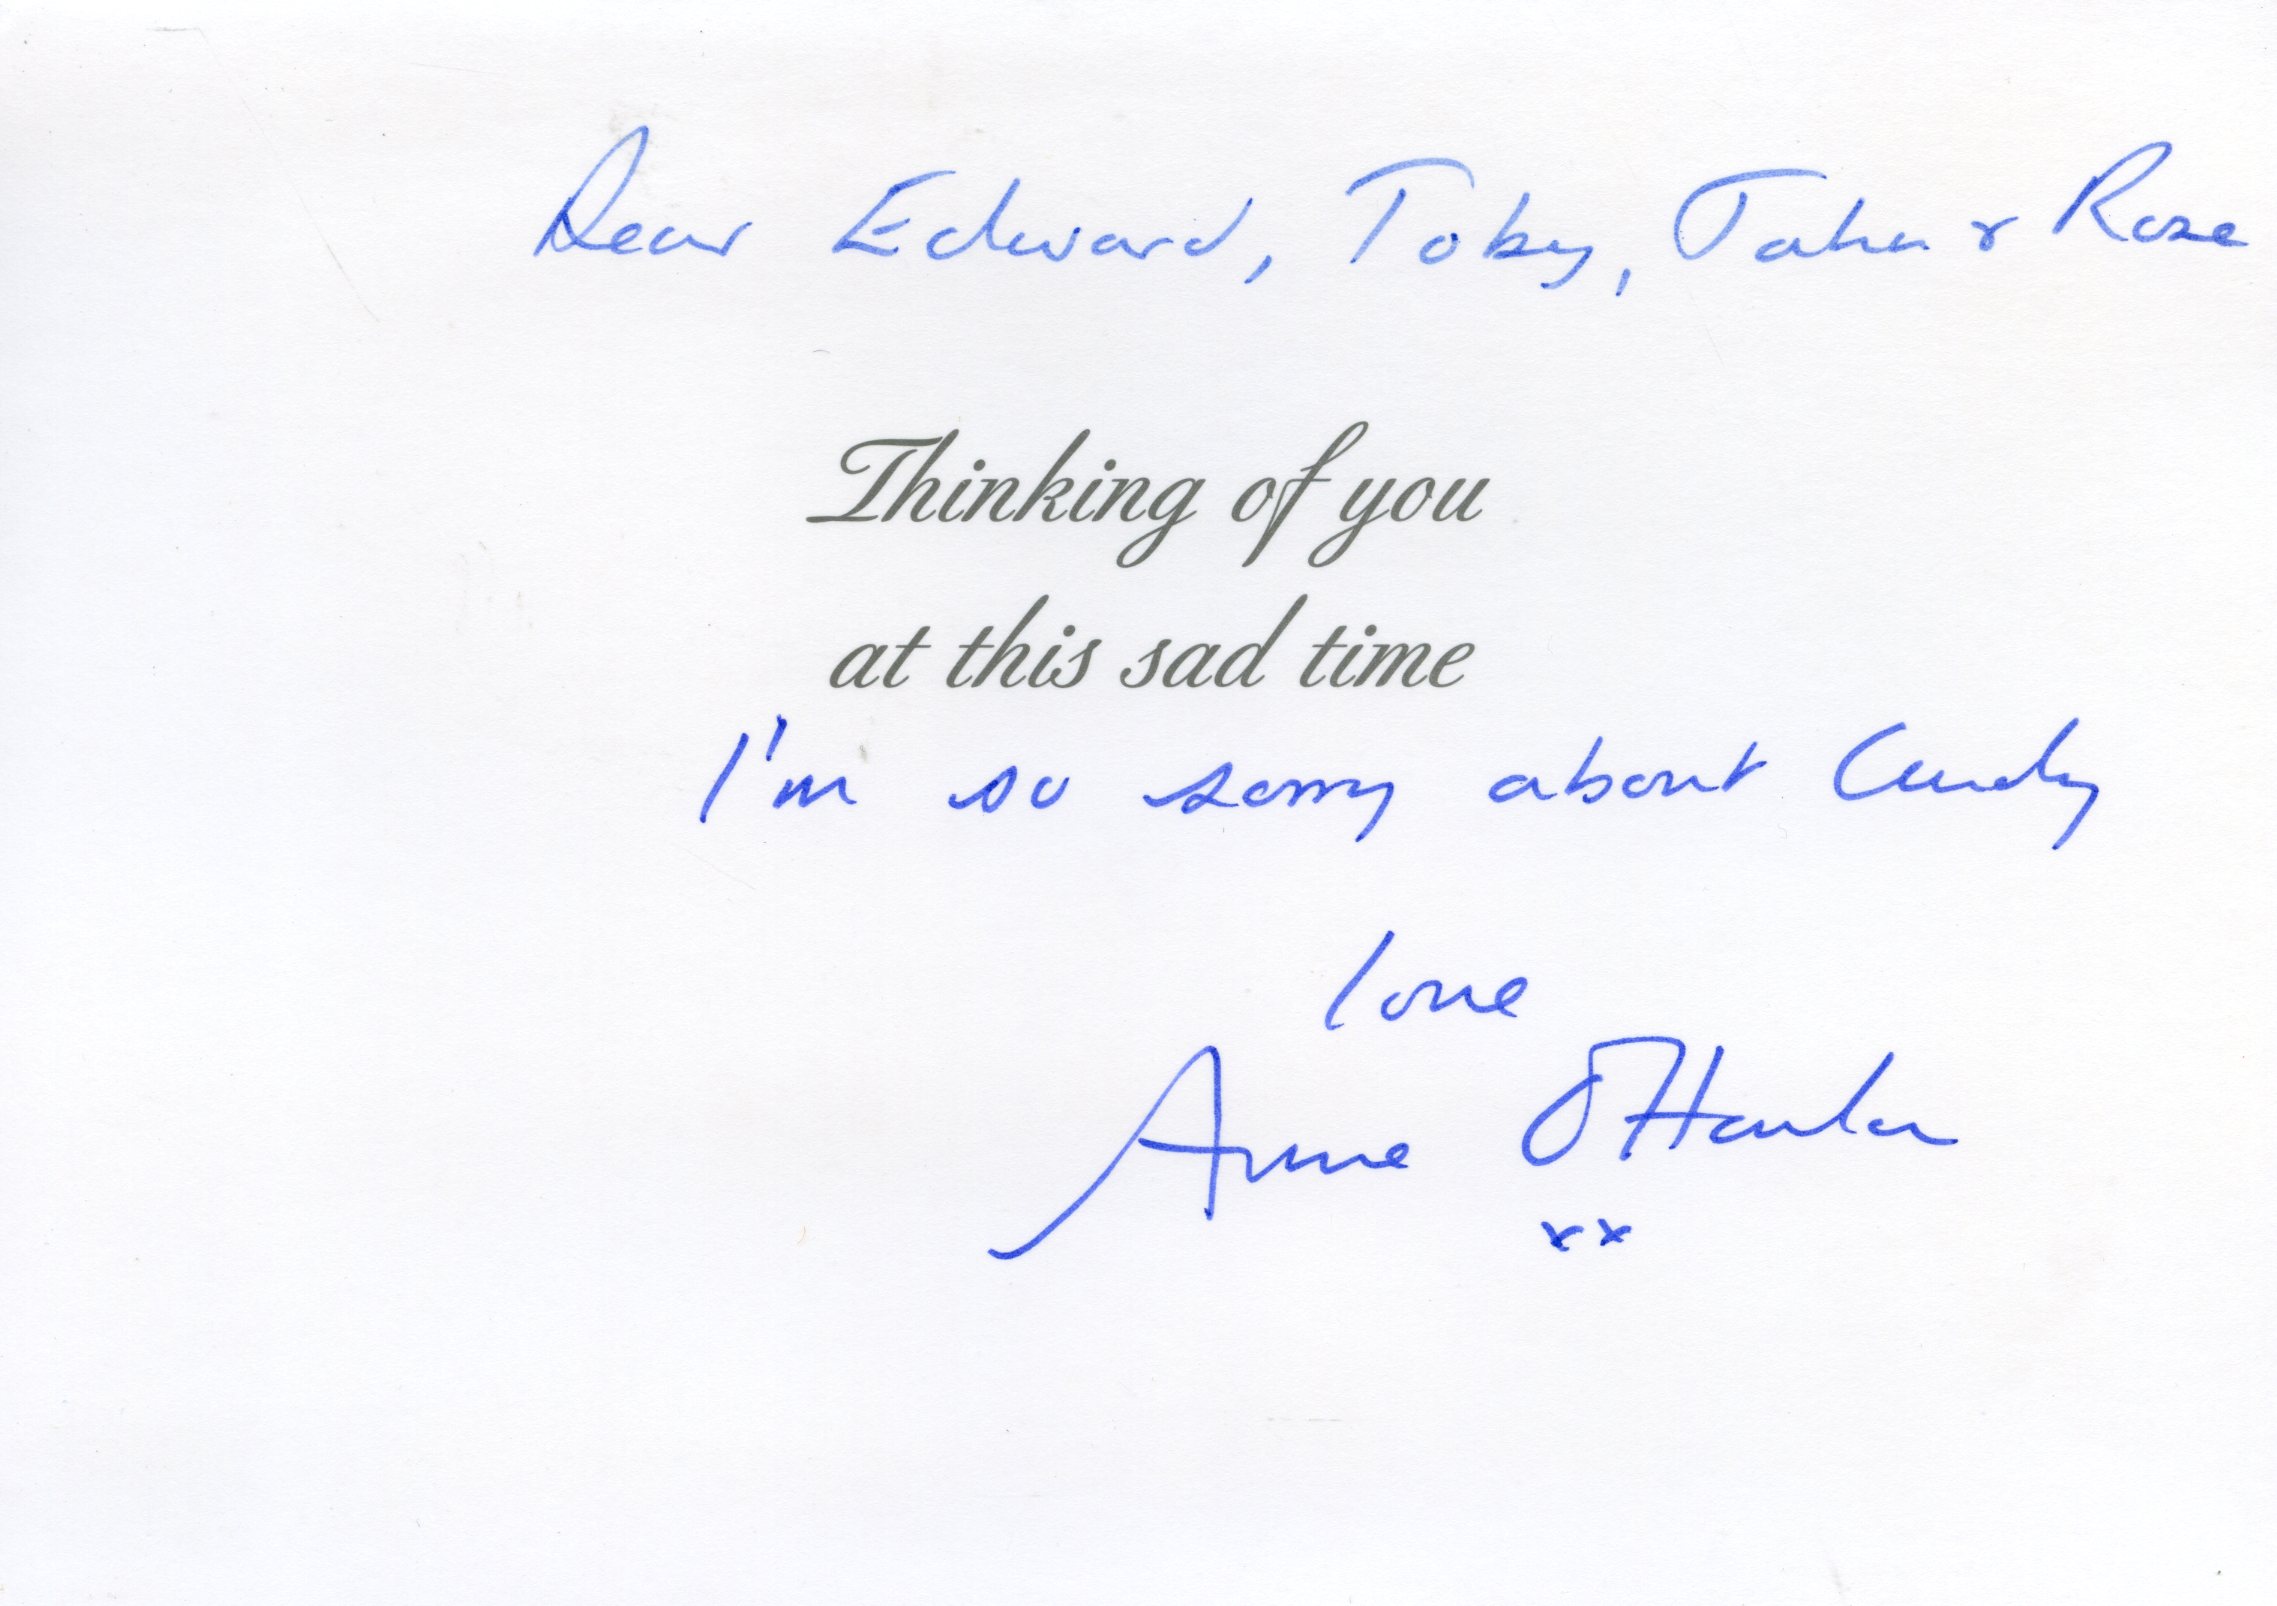 Dear Edward, Toby, & Rose
Thinking of you
at this sad time
I'm so sorry about
love
Anne O'Hanlon
xx